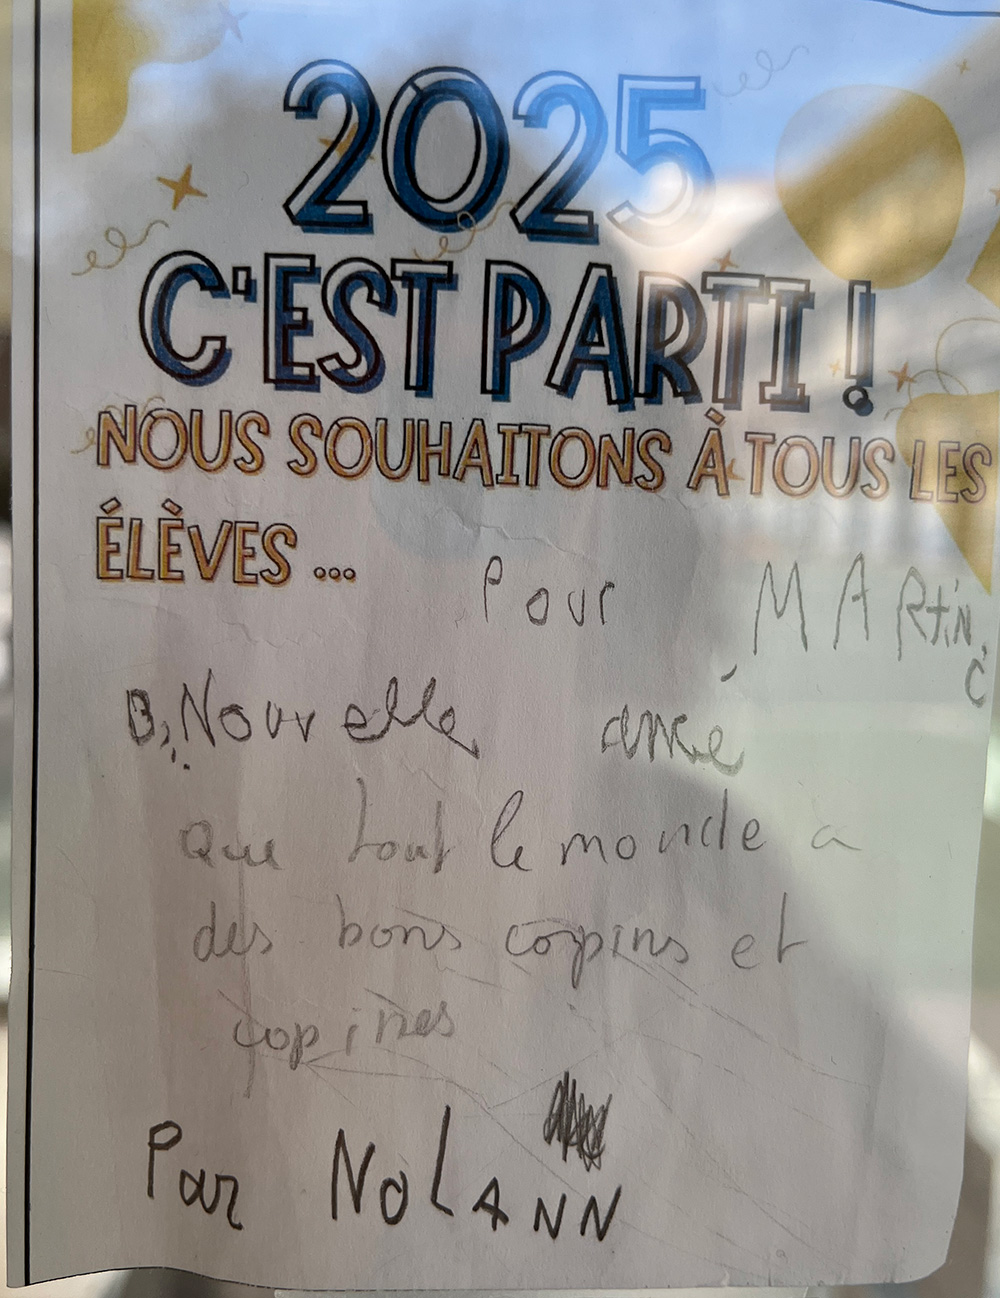 2025
C'EST PARTI !
NOUS SOUHAITONS À TOUS LES
ÉLÈVES ...
Pour MARtiN
C
Nouvelle
que tout le monde a
des bons copins et
copines
Par NoLANN